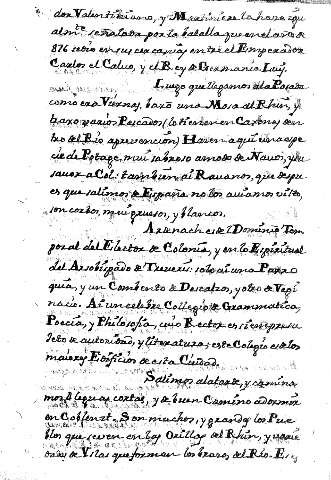 dor Valentiniano, y Maximiano la honra igu
almte. señalada por la batalla que en el año de
876 se dio en sus cercanías entre el Emperador
Carlos el Calvo, y el Rey de Germania Luis.
Luego que llegamos a la Posada
como era Viernes, baxó una Moza al Rhin, y
traxo varios Pescados (lo tienen en Caxones den
tro del Rio a prevencion) Hacen aqui una espe
cie de Potage, mui sabroso a modo de Navos, y su
savor a Col: tambien ai Ravanos, que despu
es que salimos de España no los aviamos visto,
son cortos, mui gruesos, y blancos.
Andernach es del Dominio Tem
poral del Elector de Colonia, y en lo Espiritual
del Arzobispado de Treveris: solo ai una Parro
quia, y un Combento de Descalzos, y otro de
Ai un celebre Collegio de Grammatica,
Poesia, y Philosofia, cuio Rector es siempre su
jeto de autoridad, y literatura; este Colegio es de los
maiores Edificios de esta Ciudad.
Salimos a la tarde, y camina
mos leguas cortas, y de buen Camino a dormir
en Coblenzt. Son muchos, y grandes los Pue
blos que se ven en las Orillas del Rhin, y
de Yslas que forman los brazos del Rio. Es